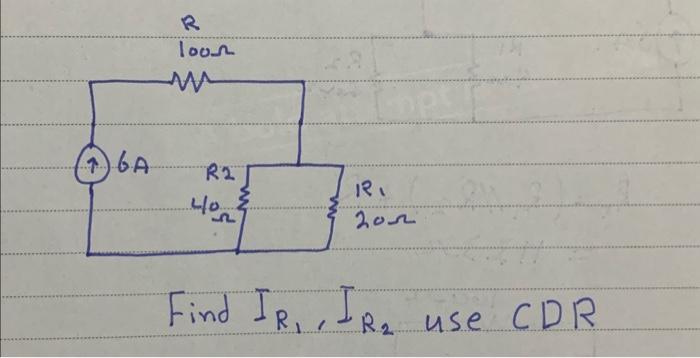 R
100Ω
6A
R2
40
Ω
R1
20Ω
Find IR1, IR2 use CDR